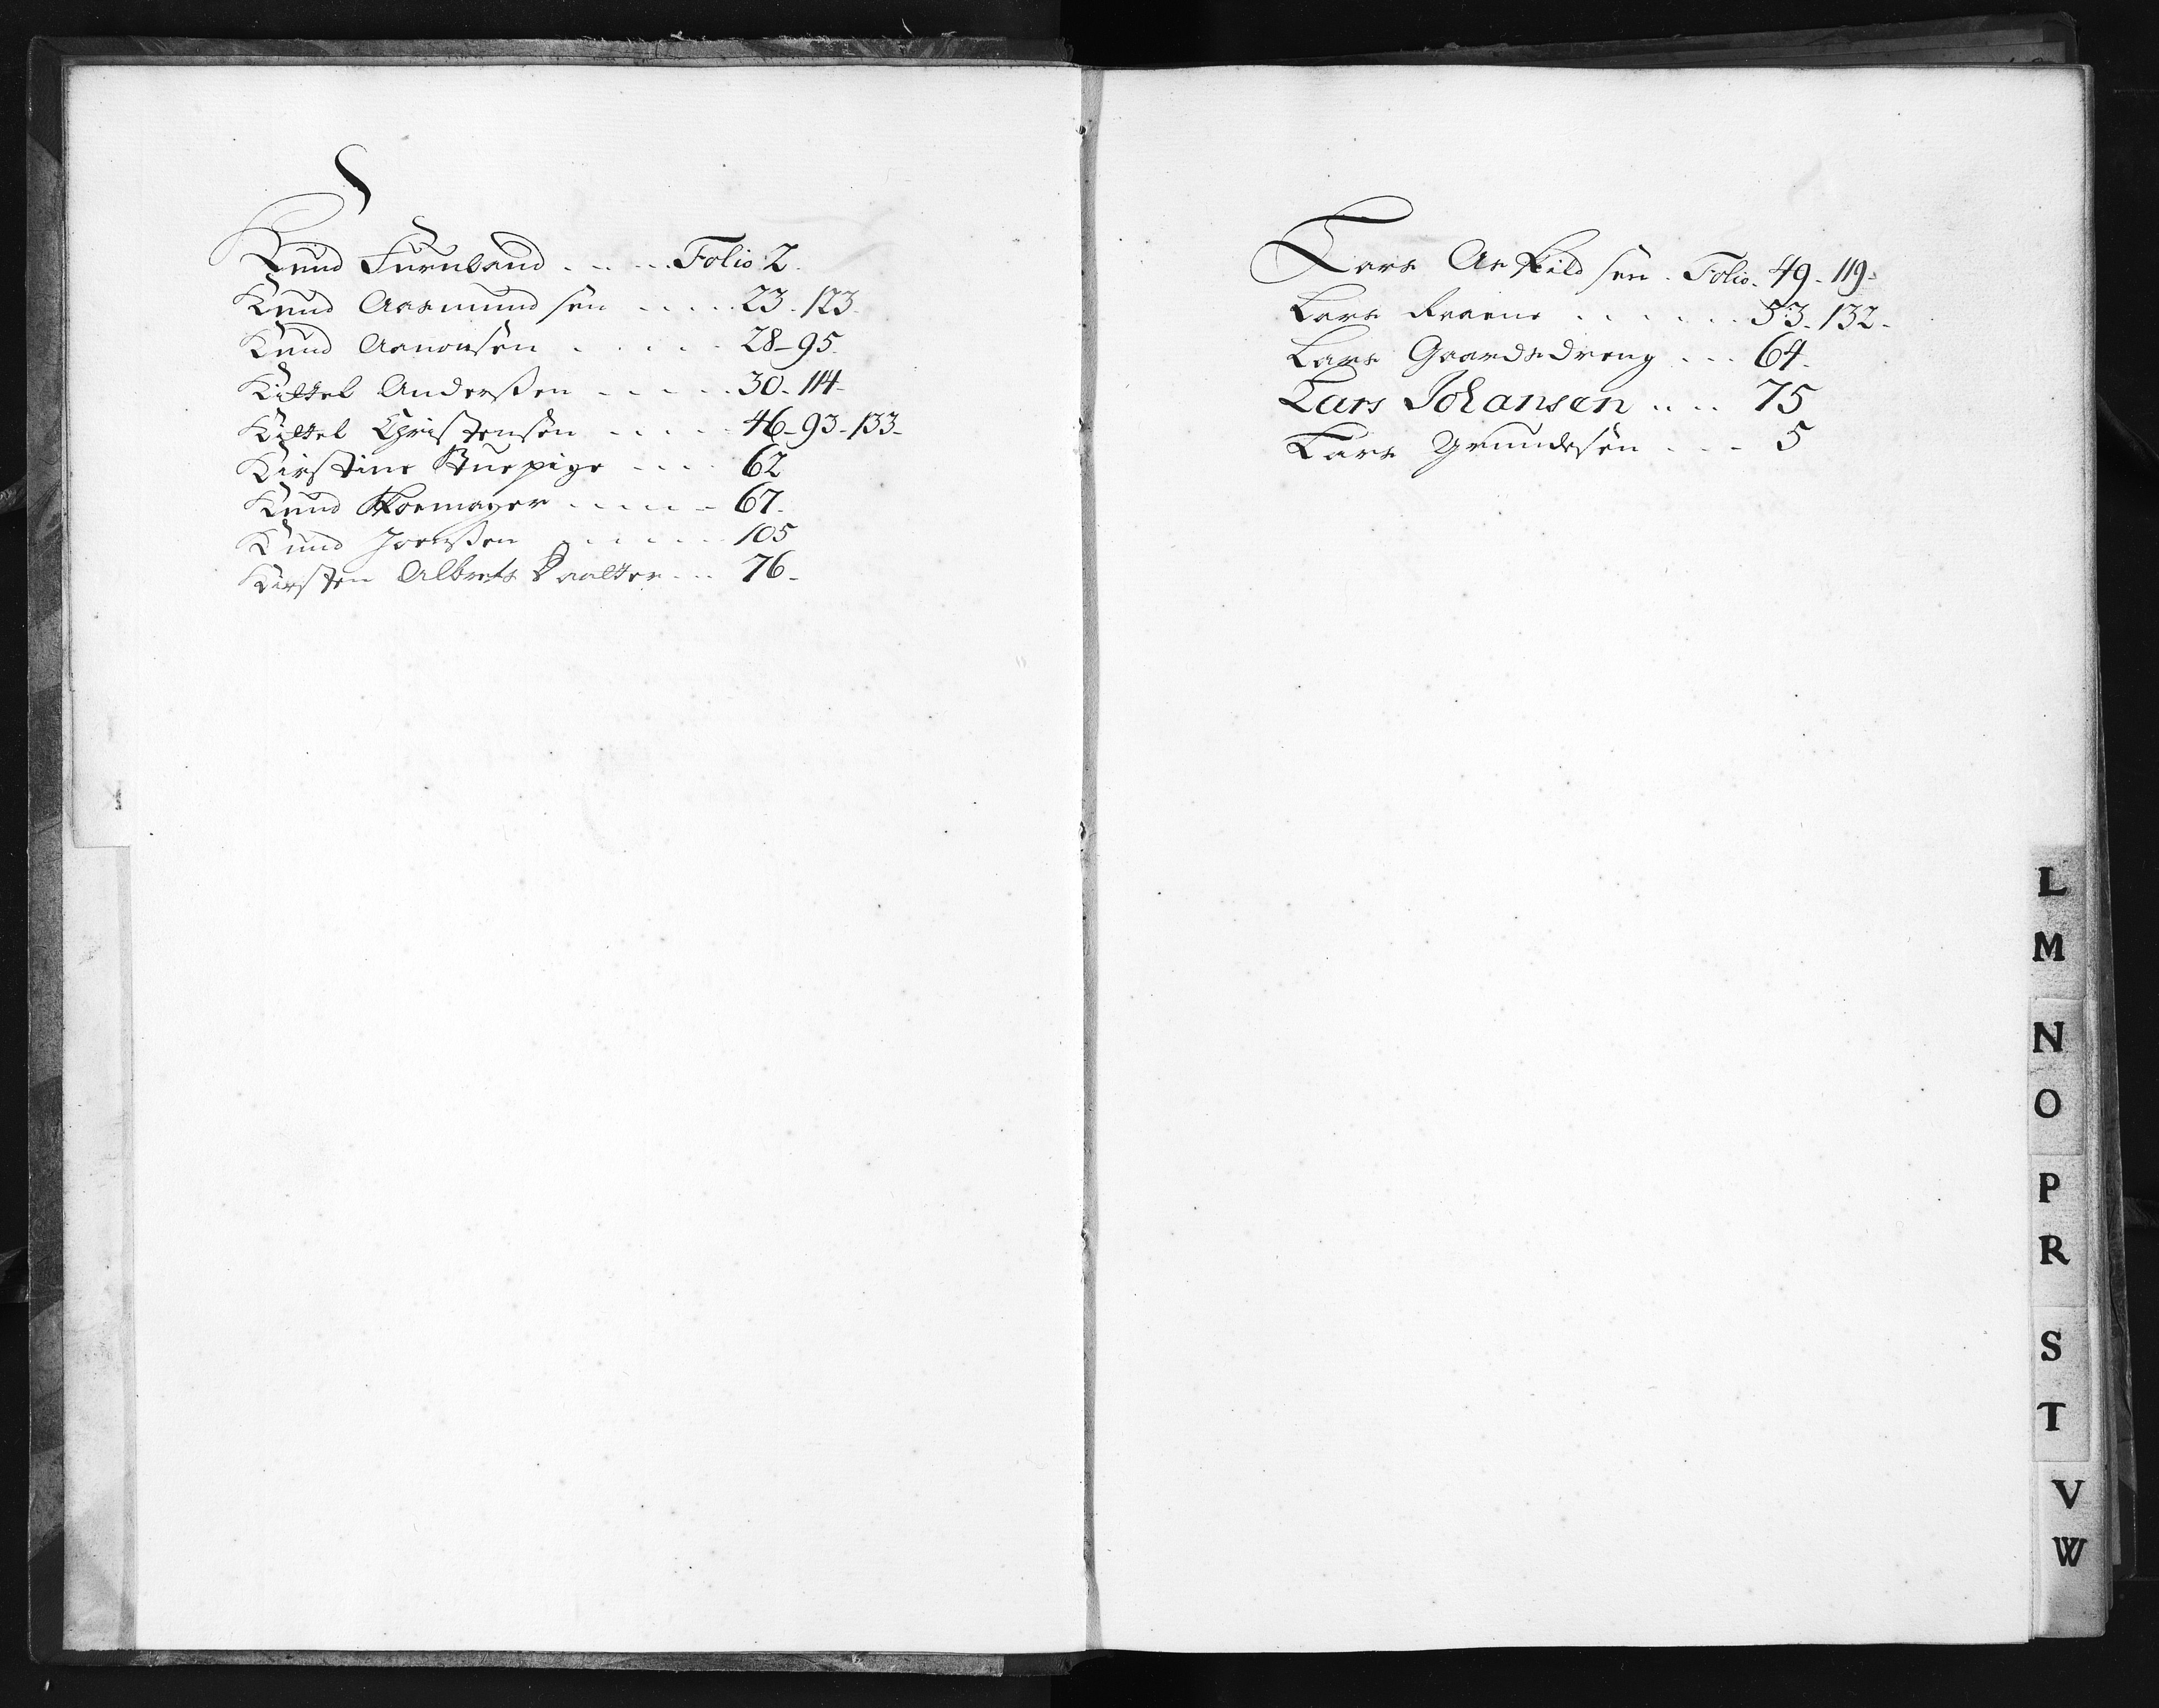 Knud Furuland . . . . . Folio 2.
Knud Aasmundsen . . . . . 23. 123.
Knud Aanonsen . . . . . 28-95.
Kittel Anderssen . . . . . 30. 114-
Kittel Christensen . . . . . 46-93-133-
Kirstine Stuepige . . . . 62
Knud Skoemager . . . . . 67.
Knud Joenssen . . . . . 105
Kirsten Alberts Daatter . . . 76-
Lars Askildsen. Folio. 49-119-
Lars . . . . . . 53-132-
Lars Gaardsdreng . . . 64.
Lars Johansen . . . . 75
Lars Grundesen . . . 5
L
M
N
O
P
R
S
T
V
W